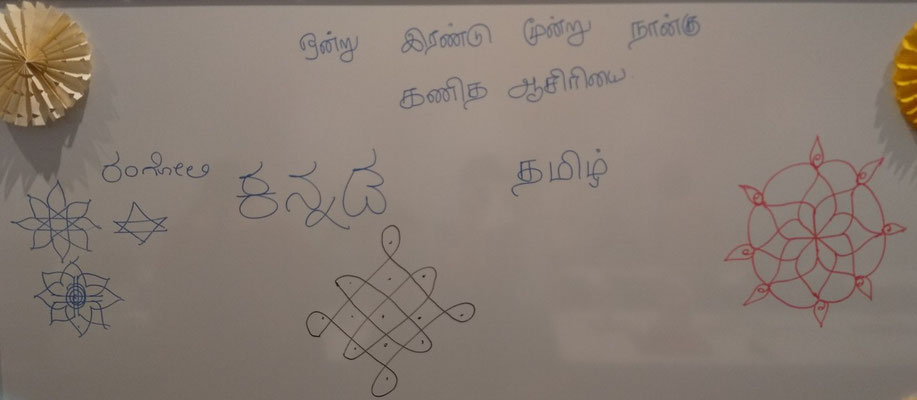 ஒன்று இரண்டு மூன்று நான்கு
கணித ஆசிரியை.
ರಂಗೋಲಿ ಕನ್ನಡ தமிழ்